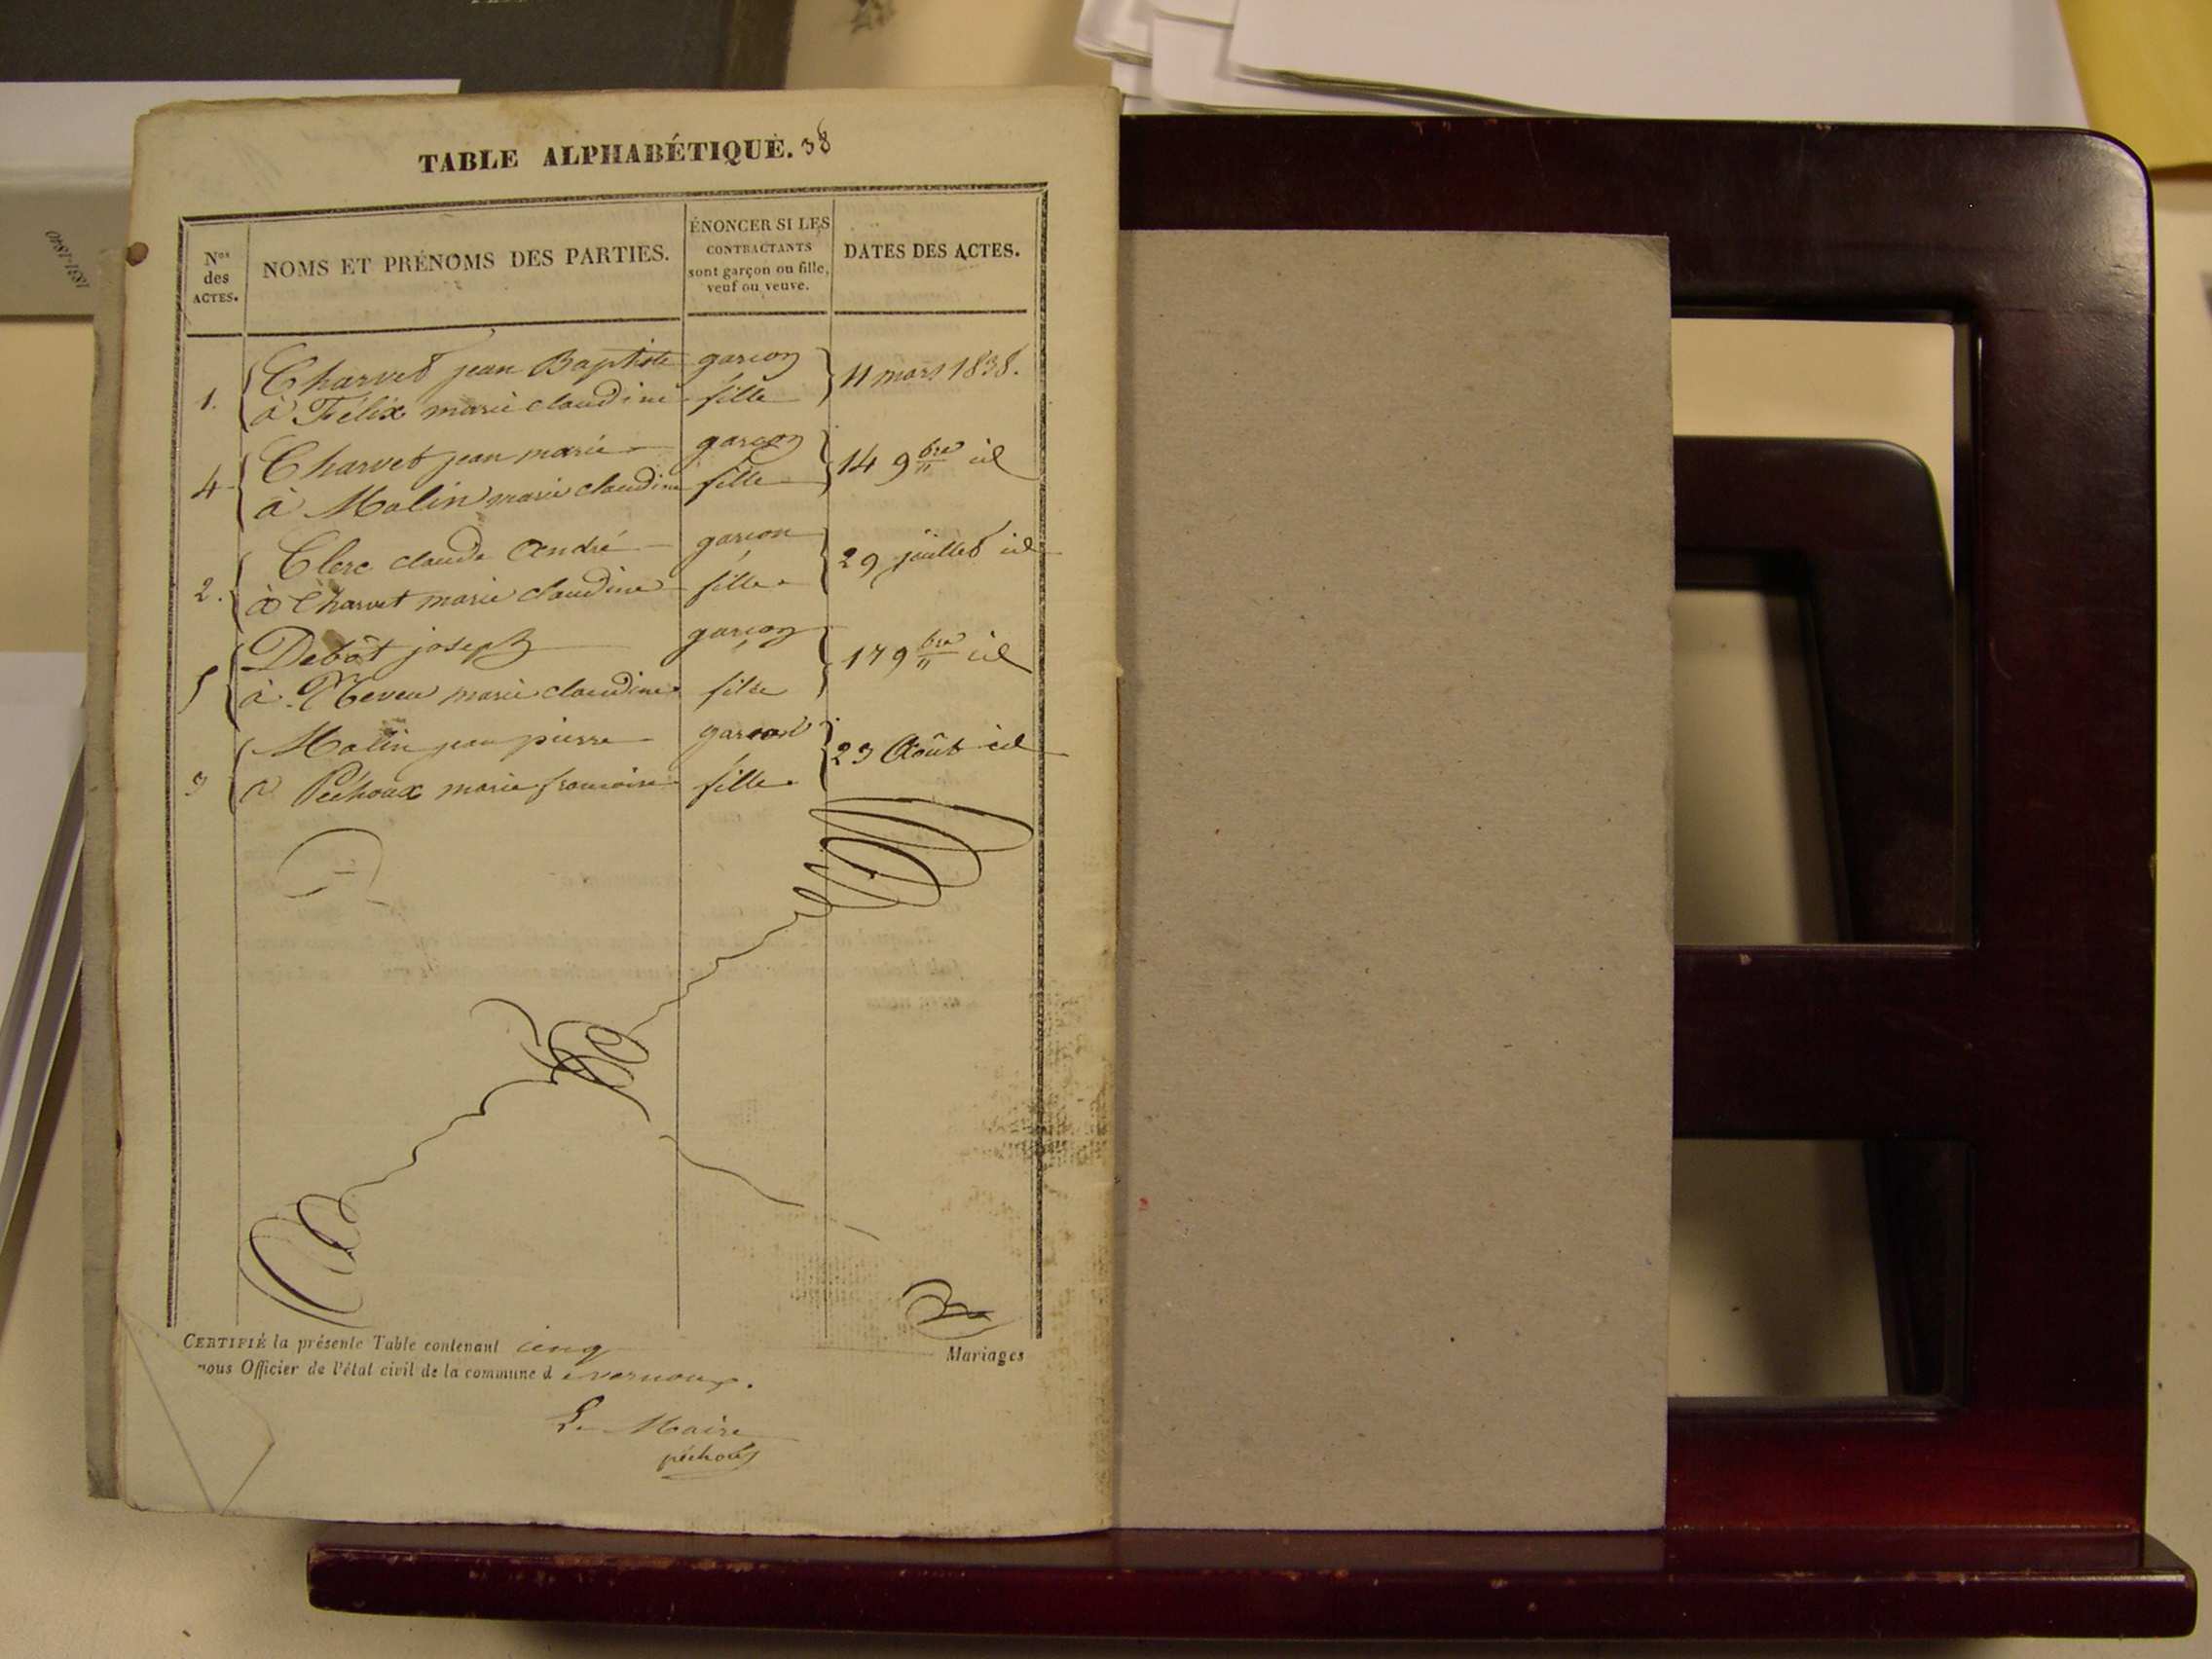 TABLE ALPHABÉTIQUE. 38
Nos des ACTES.
NOMS ET PRÉNOMS DES PARTIES.
ÉNONCER SI LES CONTRACTANTS sont garçon ou fille, veuf ou veuve.
DATES DES ACTES.
1. Charvet jean Baptiste garçon 11 mars 1838.
à Félix marie claudine fille
4 Charvet jean marie garçon 14 9bre id
à Molin marie claudine fille
2. Clerc claude André garcon 29 juillet id
à Charvet marie claudine fille
5 Debôt joseph garçon 17 9bre id
à Neveu marie claudine fille
3 Molin jean pierre garcon 23 Août id
à Péchoux marie francoise fille
CERTIFIÉ la présente Table contenant cinq Mariages
nous Officier de l'état civil de la commune de vernoux.
Le Maire
péchoux
1831-1840